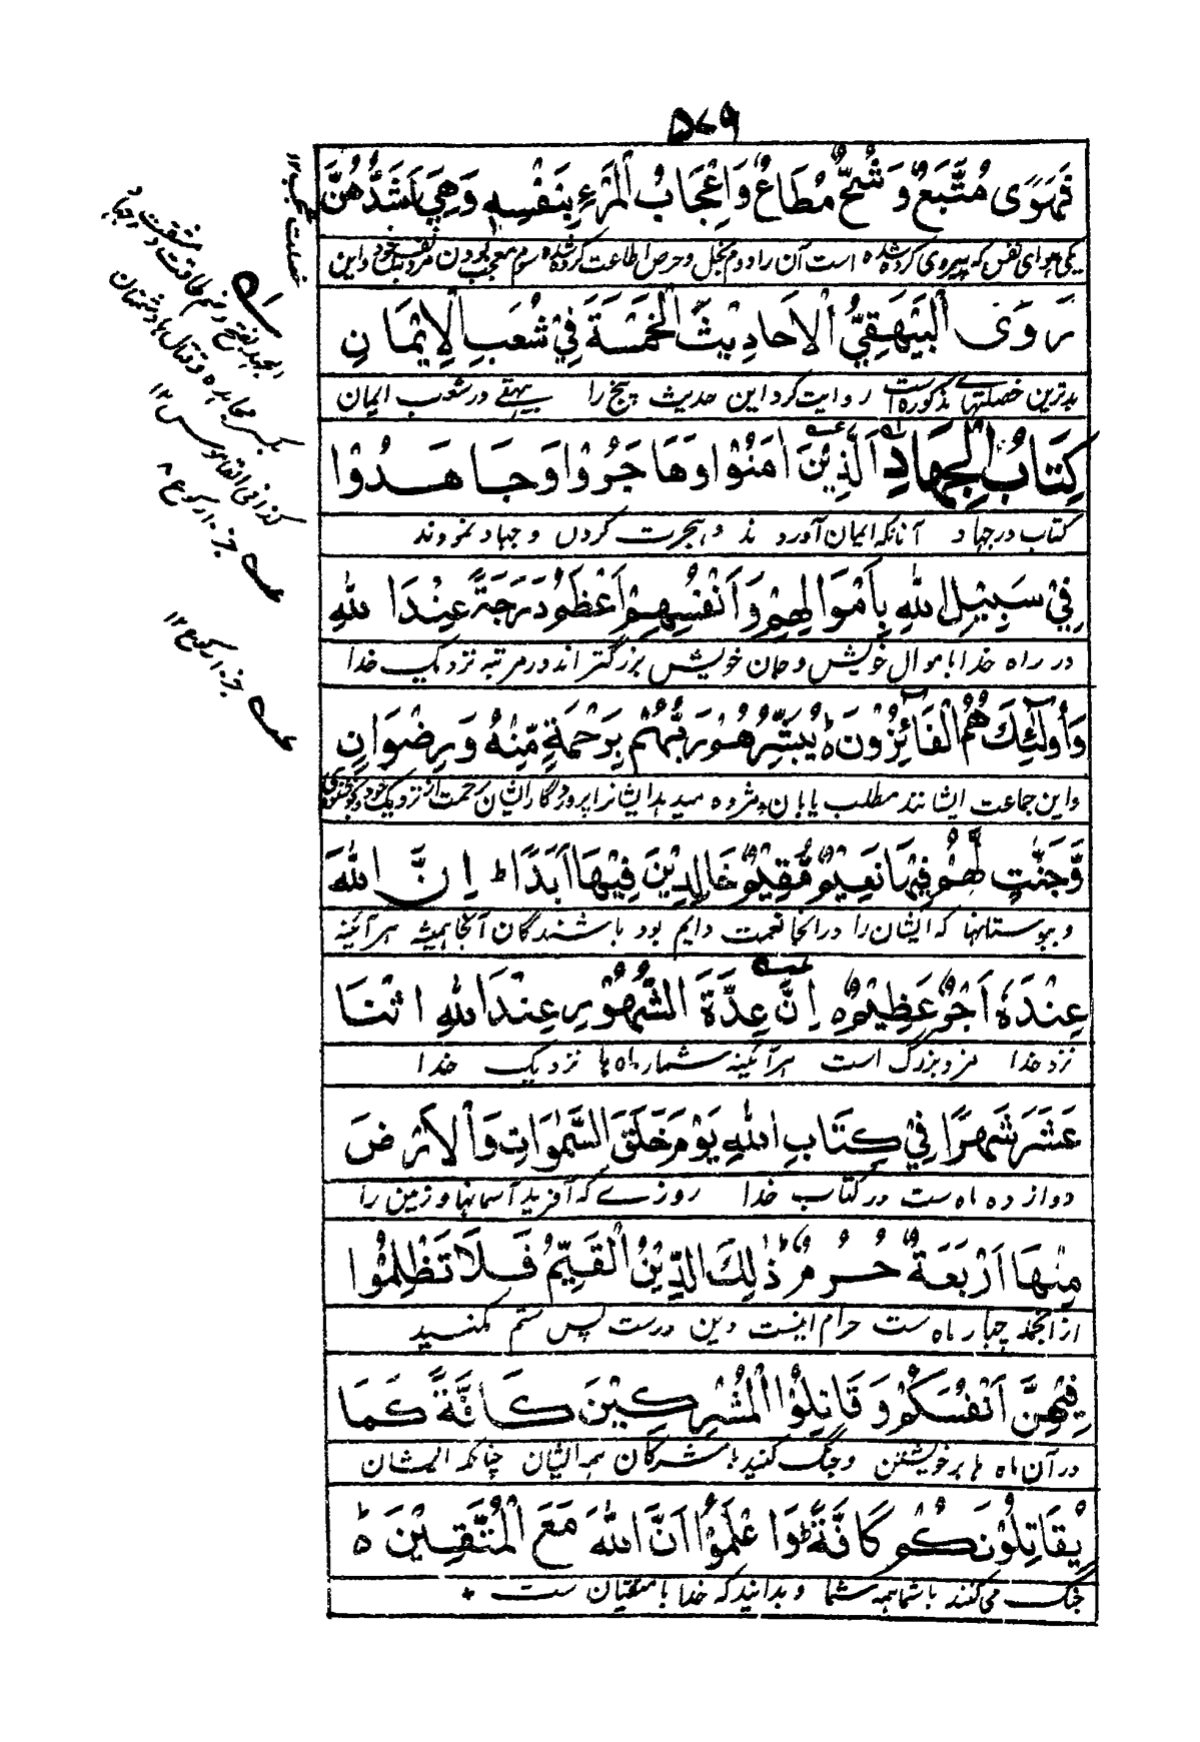 ۵۷۹
فَهَوًى مُتَّبَعٌ وَشُحٌّ مُطَاعٌ وَاِعْجَابُ الْمَرْءِ بِنَفْسِهٖ وَهِيَ اَشَدُّهُنَّ
یکی هوای نفس که پیروی کرده شده است آن را دوم بخل و حرص اطاعت کرده شده سوم معجب بودن مرد بنفس خود و این
رَوَى الْبَيْهَقِيُّ الْاَحَادِيْثَ الْخَمْسَةَ فِيْ شُعَبِ الْاِيْمَانِ
بدترین خصلتهای مذکوره است روایت کرد این حدیث پنج را بیهقے در شعب ایمان
كِتَابُ الْجِهَادِ اَلَّذِيْنَ اٰمَنُوْا وَهَاجَرُوْا وَجَاهَدُوْا
کتاب در جهاد آنانکه ایمان آوردند و هجرت کردن و جهاد نمودند
فِيْ سَبِيْلِ اللهِ بِاَمْوَالِهِمْ وَاَنْفُسِهِمْ اَعْظَمُ دَرَجَةً عِنْدَ اللهِ
در راه خدا باموال خویش و جان خویش بزرگتر اند در مرتبه نزدیک خدا
وَاُولٰٓئِكَ هُمُ الْفَآئِزُوْنَ ط يُبَشِّرُهُمْ رَبُّهُمْ بِرَحْمَةٍ مِّنْهُ وَرِضْوَانٍ
و این جماعت ایشانند مطلب یابان مژده میدهد ایشانرا پروردگار ایشان رحمت از نزدیک خود و
وَّجَنّٰتٍ لَّهُمْ فِيْهَا نَعِيْمٌ مُّقِيْمٌ خَالِدِيْنَ فِيْهَا اَبَدًا ط اِنَّ اللهَ
و ببوستانها که ایشان را در انجا نعمت دایم بود باشندگان آنجا همیشه هرآئینه
عِنْدَهٗ اَجْرٌ عَظِيْمٌ ه اِنَّ عِدَّةَ الشُّهُوْرِ عِنْدَ اللهِ اثْنَا
نزد خدا مزد بزرگ است هرآئینه شمار ماه ها نزدیک خدا
عَشَرَ شَهْرًا فِيْ كِتَابِ اللهِ يَوْمَ خَلَقَ السَّمٰوَاتِ وَالْاَرْضَ
دوازده ماه ست در کتاب خدا روزے که آفرید آسمانها و زمین را
مِنْهَا اَرْبَعَةٌ حُرُمٌ ط ذٰلِكَ الدِّيْنُ الْقَيِّمُ فَلَا تَظْلِمُوْا
ازانجمله چهار ماه ست حرام اینست دین درست پس ستم مکنید
فِيْهِنَّ اَنْفُسَكُمْ وَقَاتِلُوْا الْمُشْرِكِيْنَ كَافَّةً كَمَا
در آن ماه ها بر خویشتن و جنگ کنید با مشرکان همه ایشان چنانکه ایشان
يُقَاتِلُوْنَكُمْ كَافَّةً ط وَاعْلَمُوْا اَنَّ اللهَ مَعَ الْمُتَّقِيْنَ ط
جنگ می کنند با شما همه شما و بدانید که خدا با متقیان ست
خصلت ۱۲
الجهد بفتح و ضم طاقت و مشقت و جهاد
بکسر مجاهده و قتال با دشمنان
کذا فی القاموس ۱۲
جز ۱۰ رکوع ۸
جز ۱۰ رکوع ۱۲